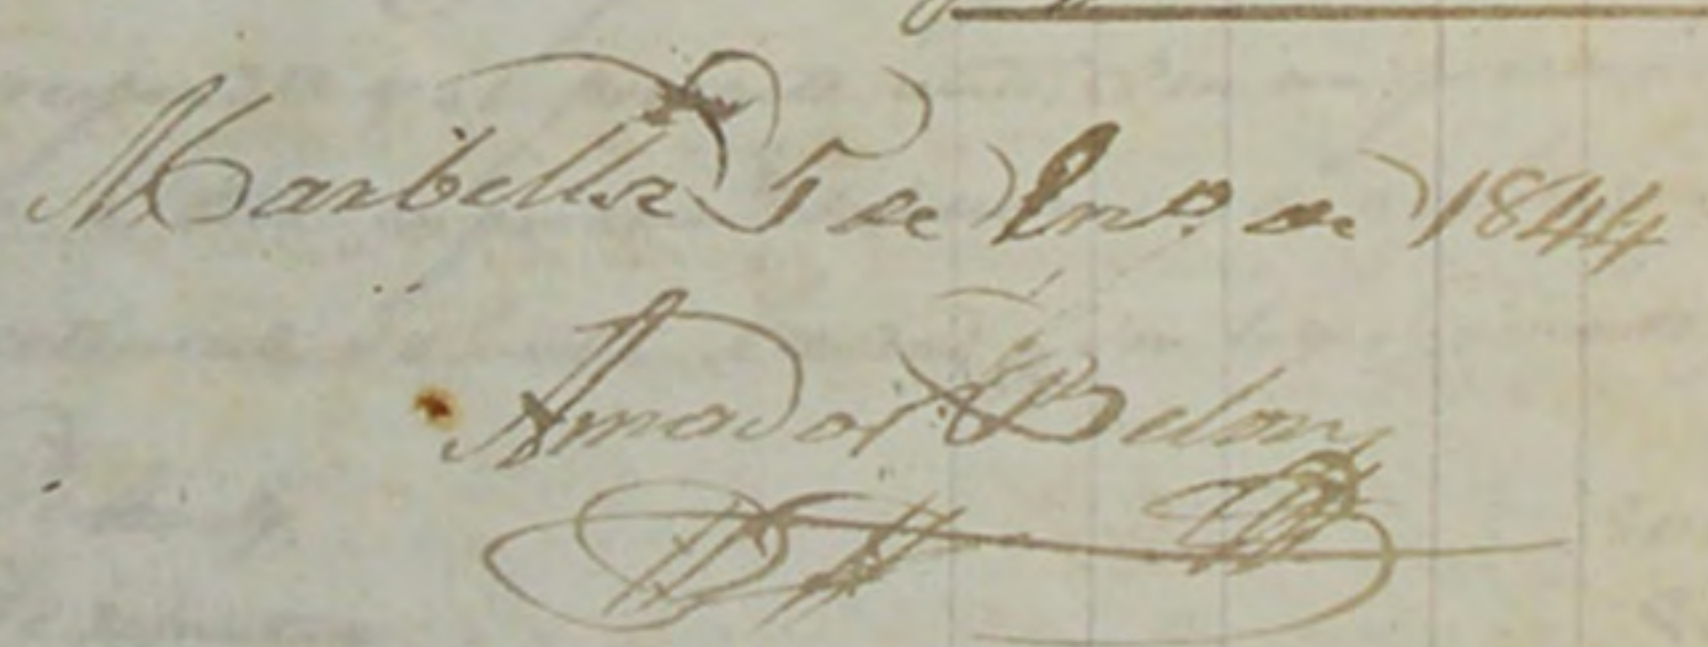 Marbella 5 de Enº. de 1844
Amador Belon